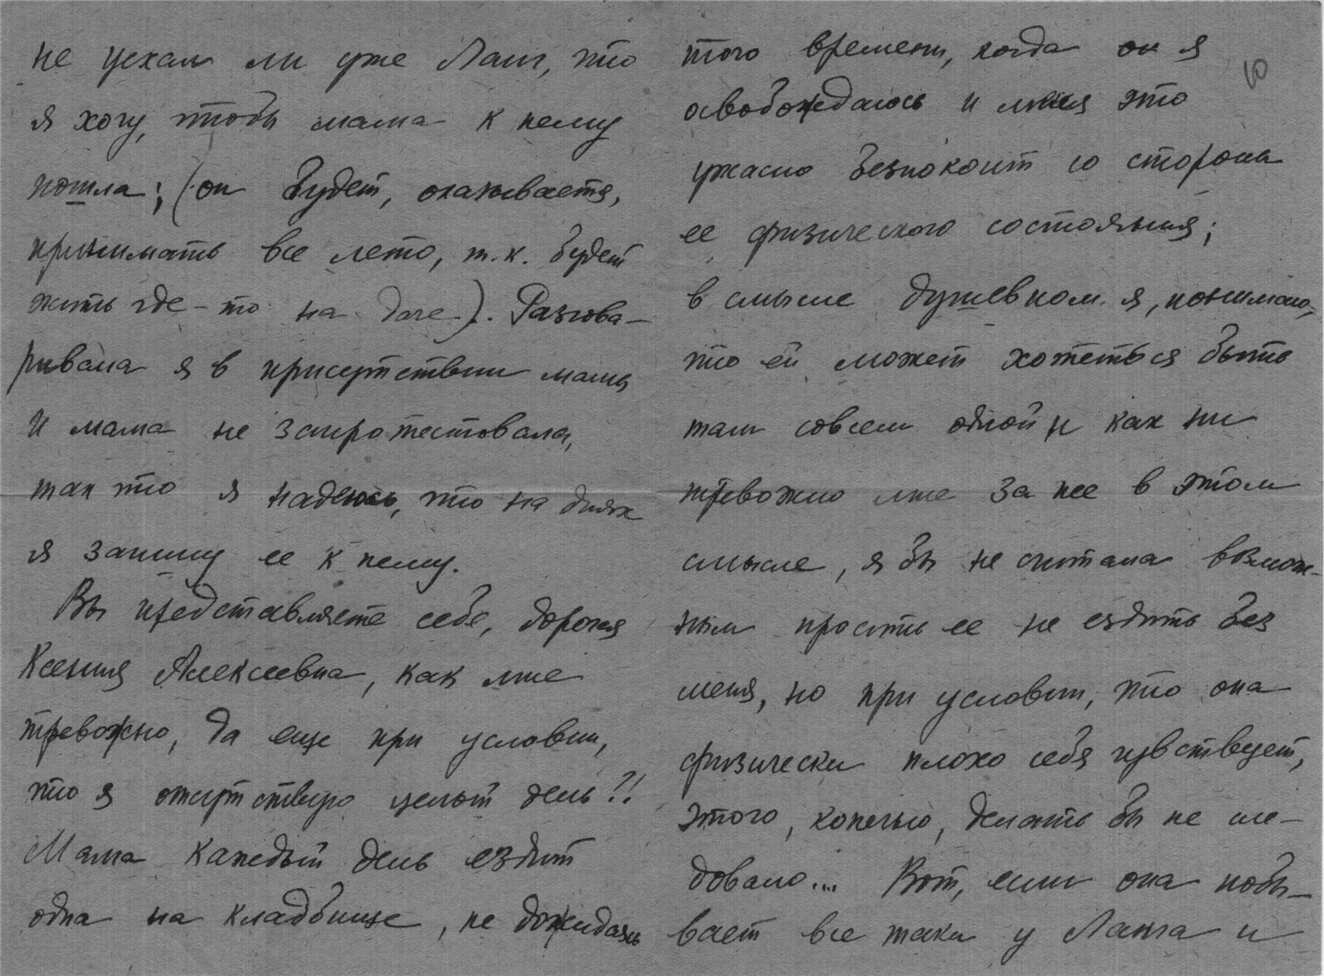 не уехал ли уже Ланг, что
я хочу, чтобы мама к нему
пошла; (он будет, оказывается,
принимать все лето, т.к. будет
жить где-то на даче). Разгова-
ривала я в присутствии мамы
и мама не запротестовала,
так что я надеюсь, что на днях
я запишу ее к нему.
Вы представляете себе, дорогая
Ксения Алексеевна, как мне
тревожно, да еще при условии,
что я отсутствую целый день?!
Мама каждый день ездит
одна на кладбище, не дожидаясь
10
того времени, когда он я
освобождаюсь и меня это
ужасно безпокоит со стороны
ее физического состояния;
в смысле душевном я, понимаю,
что ей может хотеться быть
там совсем одной и как ни
тревожно мне за нее в этом
смысле, я бы не считала возмож-
ным просить ее не ездить без
меня, но при условии, что она
физически плохо себя чувствует,
этого, конечно, делать бы не сле-
довало... Вот, если она побы-
вает все таки у Ланга и